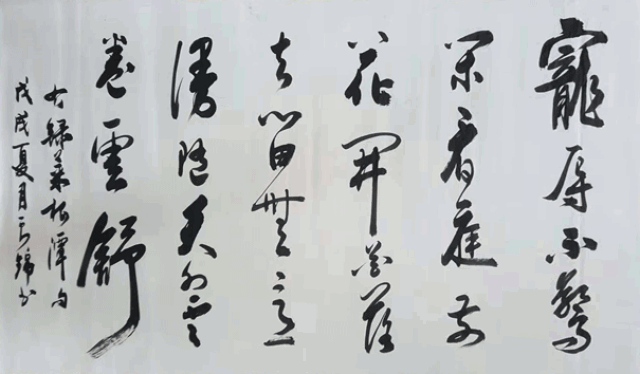 寵辱不驚
閑看庭前
花開花落
去留無意
漫隨天外雲
卷雲舒
右録菜根潭句
戊戌夏月